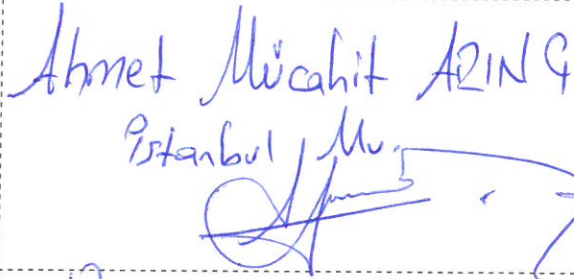 Ahmet Mücahit ARINÇ
İstanbul Mv.